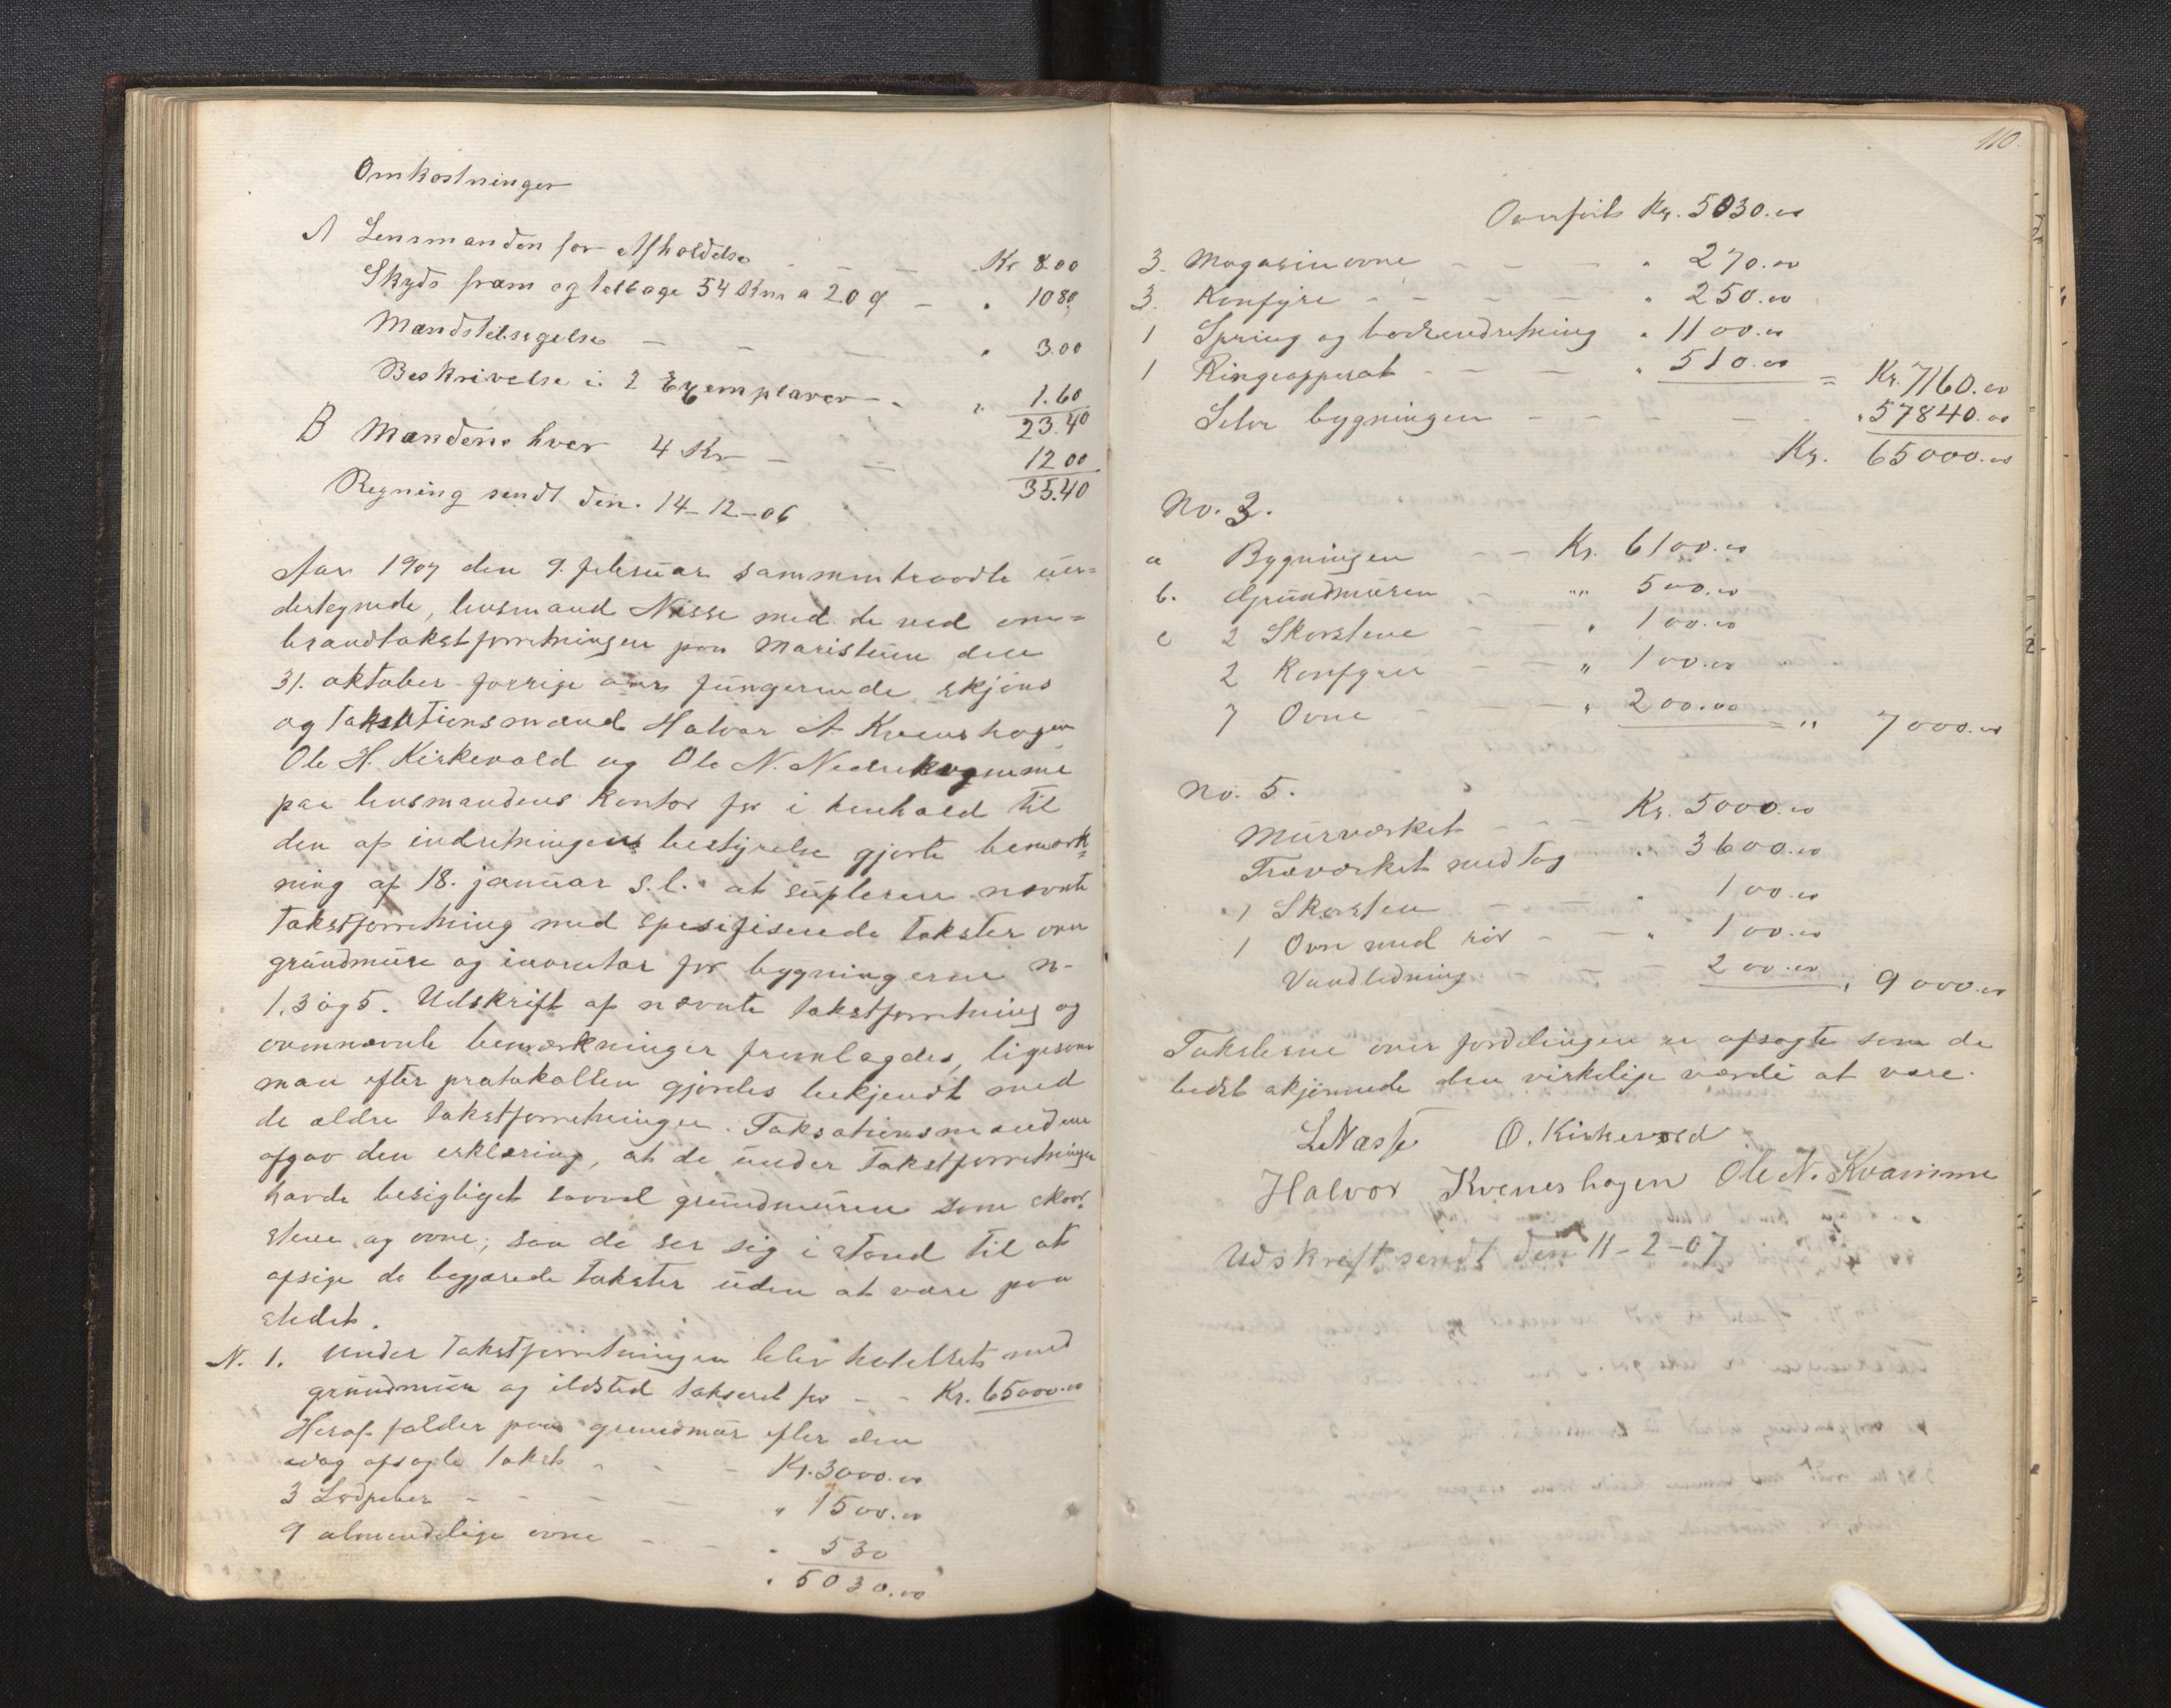 Omkostninger
A Lensmanden for Afholdelse - - - Kr 8.00
Skyds fram og tilbage 54 Km a 20 Ø - " 10 80
Mandstilsigelse - - - " 3.00
Beskrivelse i 2 Exemplarer - - " 1.60
23.40
B Mændene hver 4 Kr - - 12 00
35.40
Regning sendt den. 14-12-06
Aar 1907 den 9. februar sammentraadte un=
dertegnede, lensmand Næsse med de ved om=
brandtakstforretningen paa Maristuen den
31. oktober forrige aar fungerende skjøns
og taksationsmænd Halvor A Kvenshagen
Ole H. Kirkevold og Ole N. Nedrekvamme
paa lensmandens kontor for i henhold til
den af indretningens bestyrelse gjorte bemerk=
ning af 18. januar s.l. at suplere nævnte
takstforretning med spesifiserede takster over
grundmure og inventar for bygningerne n-
1, 3 og 5. Udskrift af nævnte takstforretning og
ovennævnte bemærkninger fremlagdes, ligesom
man efter protokollen gjordes bekjendt med
de ældre takstforretninger. Taksationsmændene
afgav den erklæring, at de under takstforretningen
havde besigtiget saavel grundmurene som skor-
stene og ovne, saa de ser sig i stand til at
afsige de begjærede takster uden at være paa
stedet.
N. 1. Under takstforretningen blev hotellet med
grundmur og ildsted takseret for - - Kr. 65000.00
Heraf falder paa grundmur efter den
idag afsagte takst - - - Kr. 3000.00
3 Lødpiber - - - - " 1500.00
9 almindelige ovne - - - " 530
" 5030.00
110.
Overført Kr. 5030.00
3. Magasinovne - - - " 270.00
3. Konfyre - - - - " 250.00
1 Spring og badeindretning " 1100.00
1 Ringeapparat - - - " 510.00 = Kr. 7160.00
Selve bygningen - - - - " 57840.00
Kr. 65000.00
No. 3.
a Bygningen - - Kr. 6100.00
b. Grundmuren - "" 500.00
c 2 Skorstene - - " 100.00
2 Konfyrer - - " 100.00
7 Ovne - - - " 200.00 = " 7000.00
No. 5.
Murværket - - - Kr. 5000.00
Træværket med tag " 3600.00
1 Skorsten - - - " 100.00
1 Ovn med rør - - " 100.00
Vandledning - - - 200.00 " 9000.00
Taksterne over fordelingen er afsagte som de
bedst skjønnede den virkelige værdi at være.
L Næsse O. Kirkevold
Halvor Kveneshagen Ole N. Kvamme
Udskrift sendt den 11-2-07